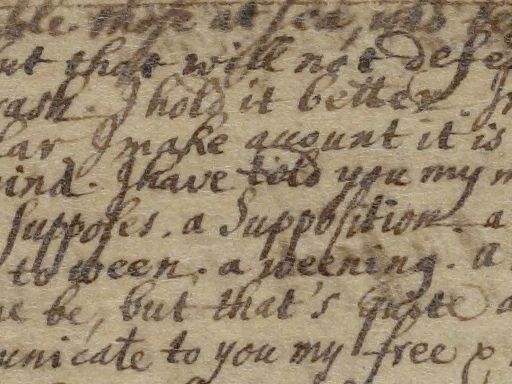 ble those at sea, who
ut that will not defe
rash. I hold it better. I
lar I make account it is
ind. I have told you my m
supposes. a Supposition. a
to ween. a weening. a
ue be, but that's quite a
unicate to you my free